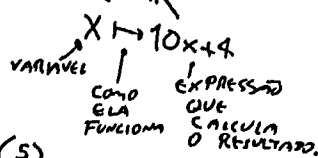 X ↦ 10x+4
VARIÁVEL
COMO
ELA
FUNCIONA
EXPRESSÃO
QUE
CALCULA
O RESULTADO.
(5)